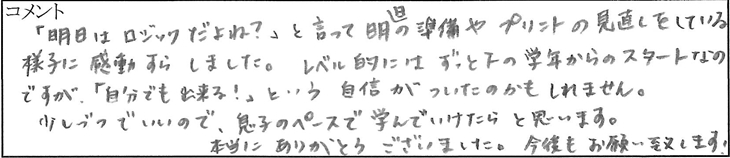 コメント
「明日はロジックだよね？」と言って明日の準備やプリントの見直しをしている
様子に感動すらしました。レベル的にはずっと下の学年からのスタートなの
ですが、「自分でも出来る！」という自信がついたのかもしれません。
少しづつでいいので、息子のペースで学んでいけたらと思います。
本当にありがとうございました。今後もお願い致します！